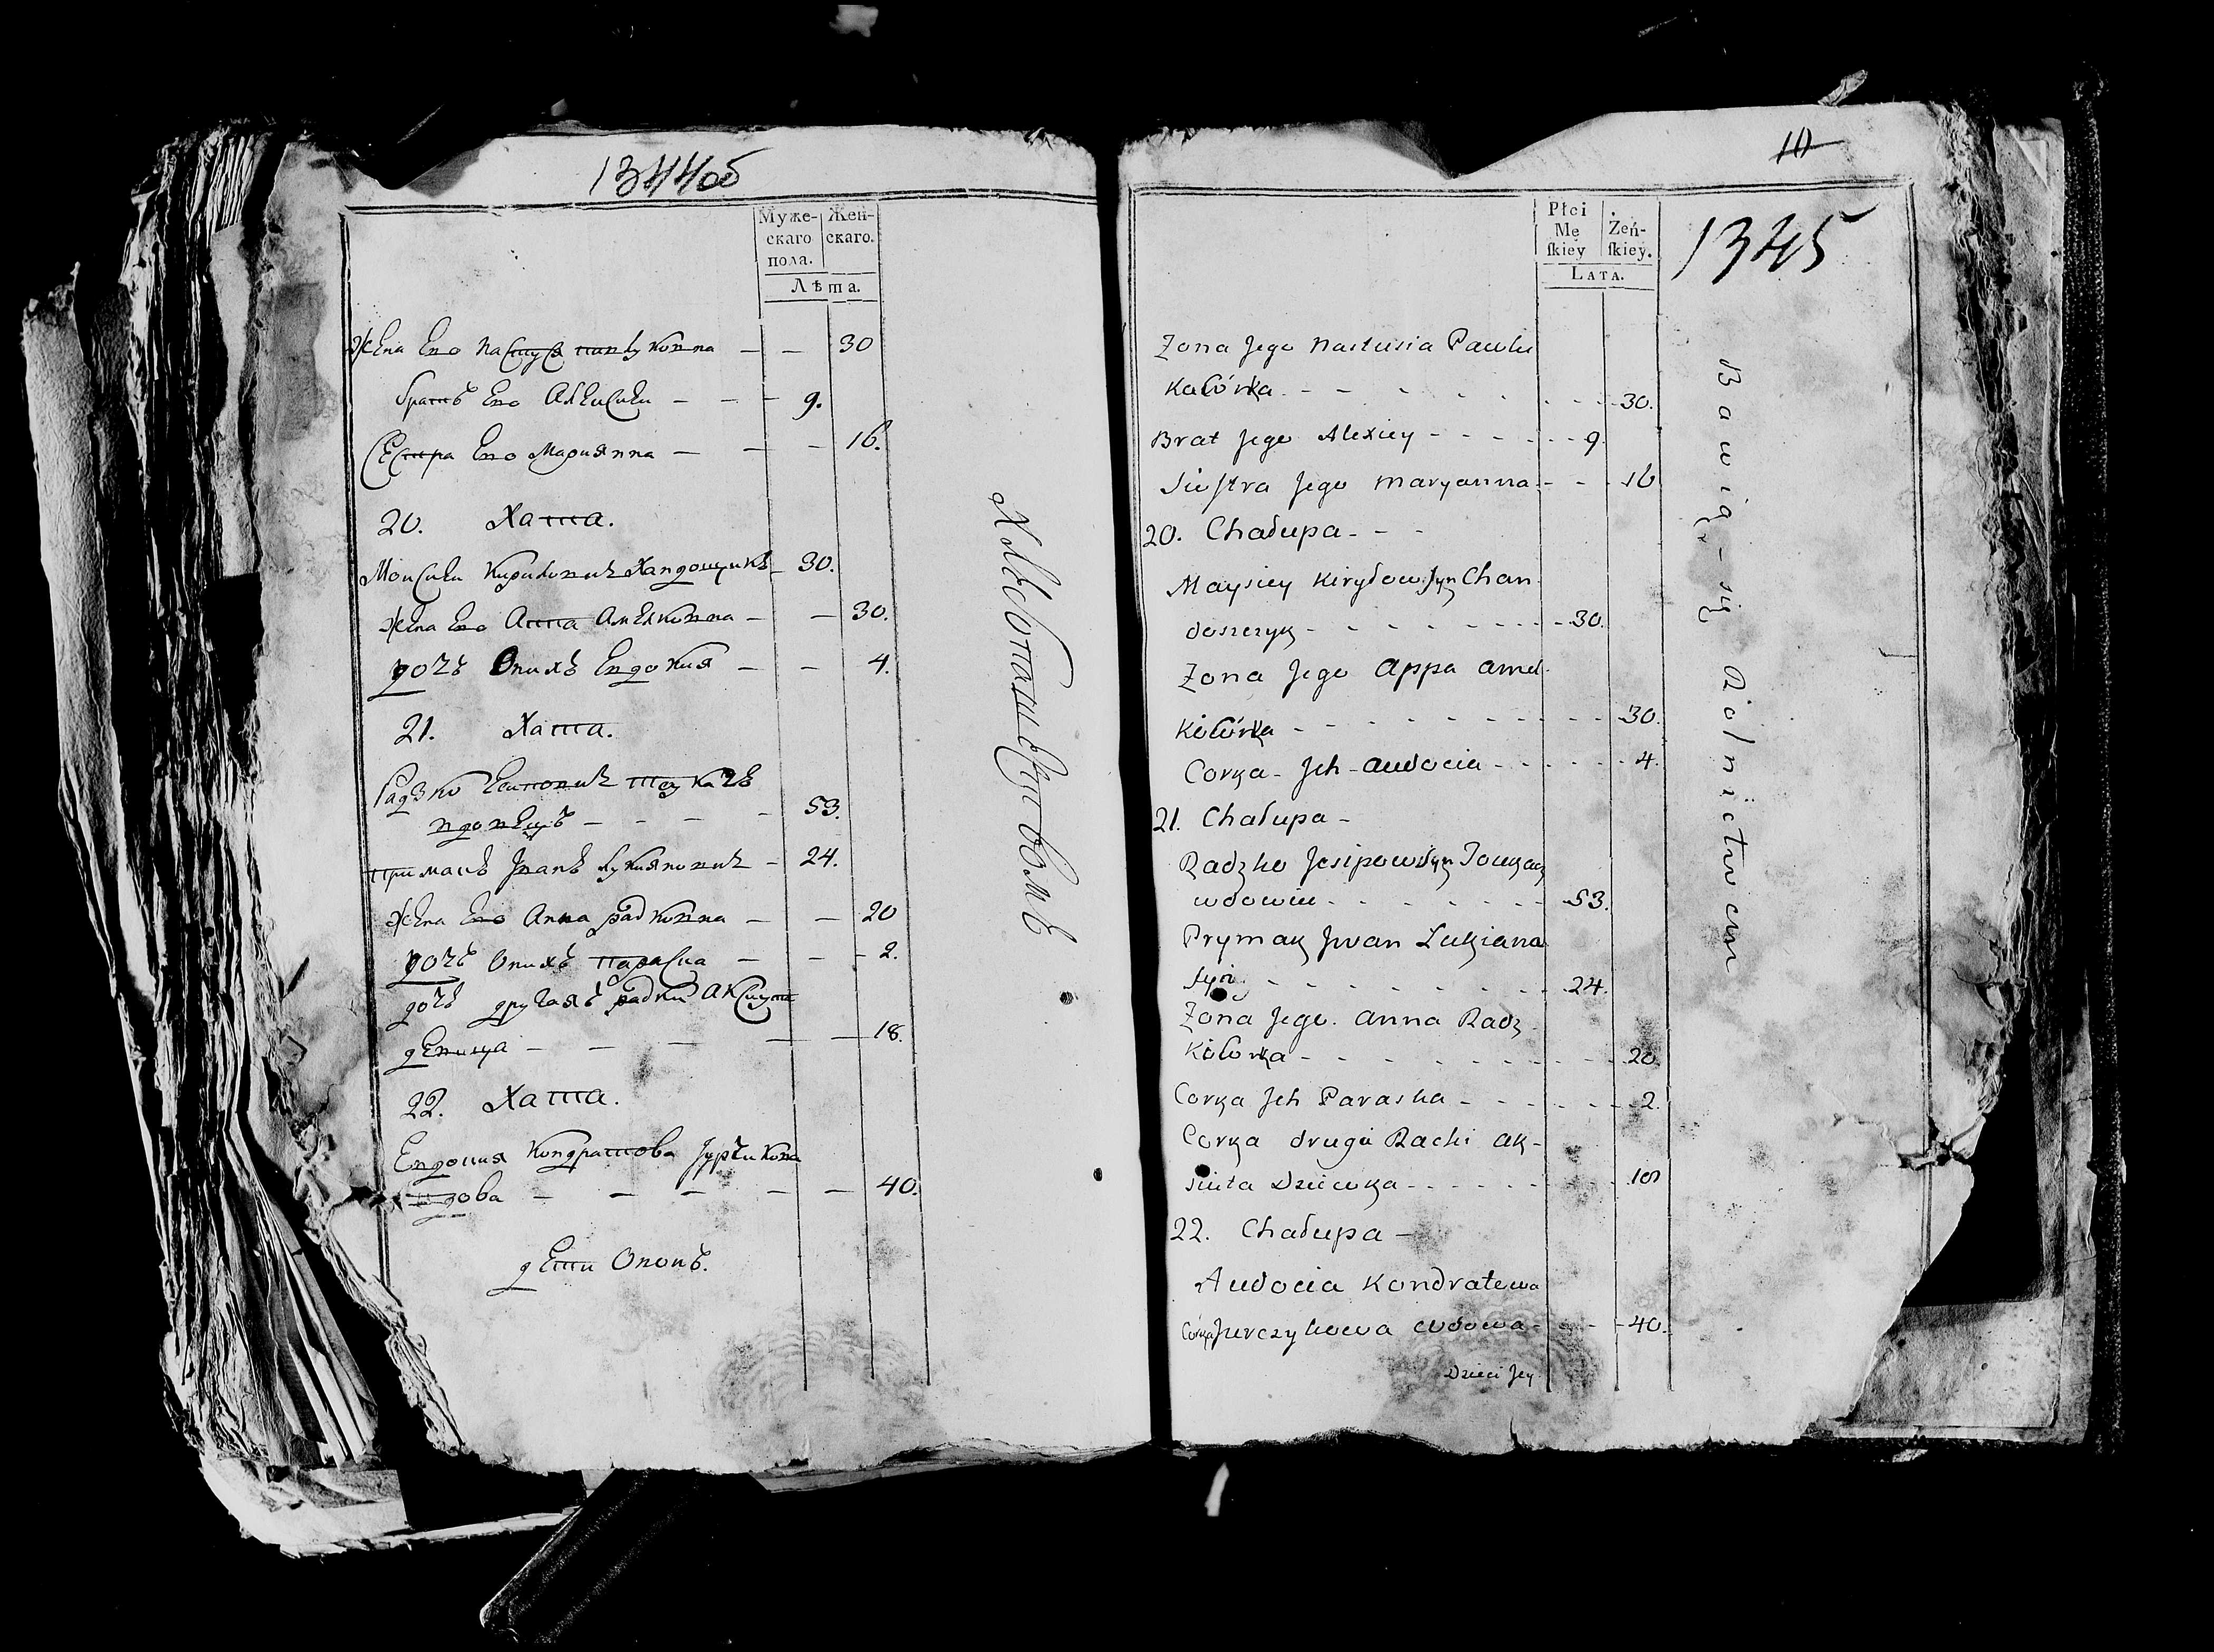 1344об
Муже- Жен-
скаго скаго.
пола.
Лѣта.
Жена Его Настуся Павлуковна — — 30
братъ Его Алексѣи — — — 9.
Сестра Его Марианна — — — 16.
20. Хата.
Моисѣи Кириловичъ Хандошчикъ — 30.
Жена Его Аппа Амелковна — — 30.
дочь Онихъ Евдокия — — 4.
21. Хата.
Радзко Есиповичъ Ткачь
вдовецъ — — — — 53.
примакъ Иванъ Лукиановичъ — 24.
Жена Его Анна радковна — — 20
дочь Онихъ параска — — - 2.
дочь другаяъ радки Аксюта
девица — — — — — 18.
22. Хата.
Евдокия Кондратова Юрчикова
вдова — — — — — 40.
дети Оной.
Хлебопашествомъ
10
1345
Płci Żeń-
Mę skiey.
skiey
LATA.
Zona Jego Nastusia Pawlu
kałówka - - - - - - - 30.
Brat Jego Alexiey - - - - - - 9
Siostra Jego Maryanna - - - 16
20. Chałupa - -
Maysiey Kiryłow Syn Chan
doszczyk - - - - - - - - 30.
Zona Jego Appa Amel
kołówka - - - - - - - - 30.
Corka - Jch - Audocia - - - - - - 4.
21. Chałupa -
Radzko Jesipow Syn Toukacz
wdowiec - - - - - - - 53.
Prymak Jwan Łukiana
Syn - - - - - - - - 24.
Zona Jego. Anna Radz
kołowka - - - - - - - - 20.
Corka Jch Paraska - - - - - - 2.
Corka druga Radki Ak-
siuta Dziewka - - - - - - - 18
22. Chałupa -
Audocia Kondratowa
Corka Jurczykowa wdowa - - - 40.
Dzieci Jey
Bawią - się Rolnictwem